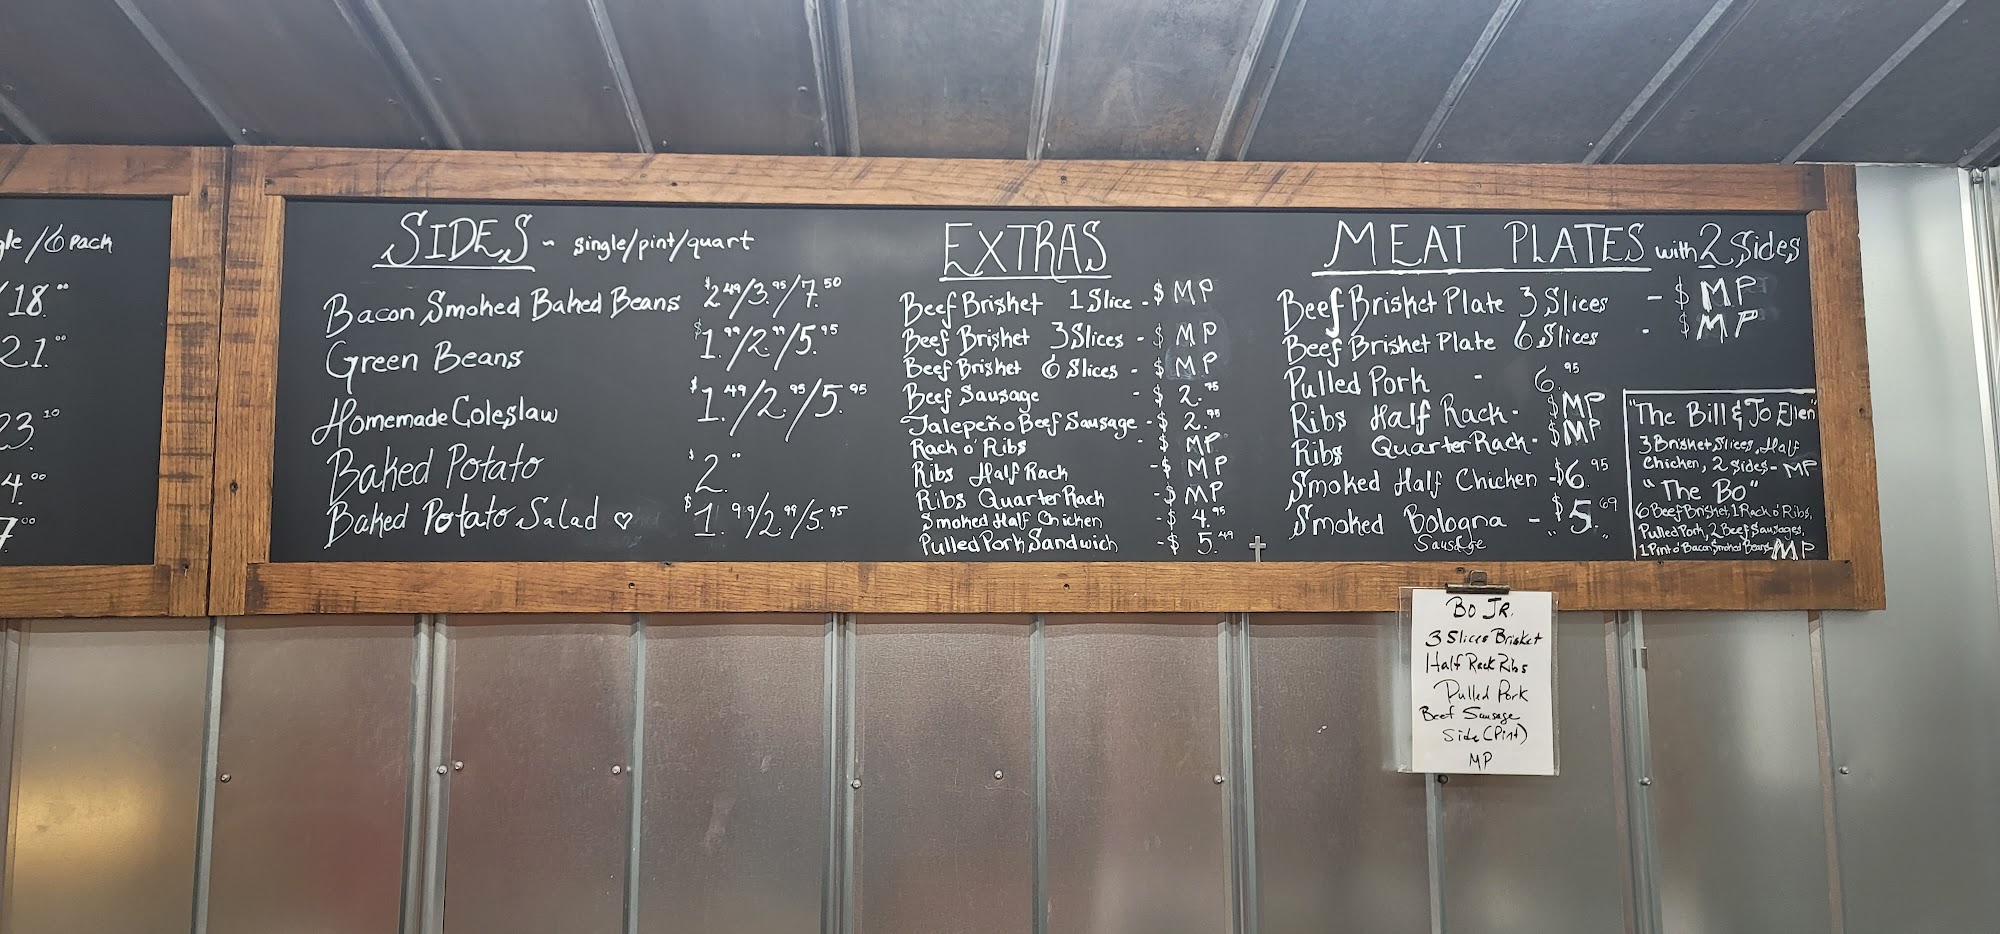 /6 Pack
18.00
21.00
23.10
4.00
7.00
SIDES - single/pint/quart
Bacon Smoked Baked Beans $2.49/3.95/7.50
Green Beans $1.99/2.99/5.95
Homemade Coleslaw $1.49/2.95/5.95
Baked Potato $2.00
Baked Potato Salad ♡ $1.99/2.99/5.95
EXTRAS
Beef Brisket 1 Slice - $ MP
Beef Brisket 3 Slices - $ MP
Beef Brisket 6 Slices - $ MP
Beef Sausage - $ 2.75
Jalepeño Beef Sausage - $ 2.95
Rack o' Ribs - $ MP
Ribs Half Rack - $ MP
Ribs Quarter Rack - $ MP
Smoked Half Chicken - $ 4.95
Pulled Pork Sandwich - $ 5.49
MEAT PLATES with 2 Sides
Beef Brisket Plate 3 Slices - $ MP
Beef Brisket Plate 6 Slices - $ MP
Pulled Pork - 6.95
Ribs Half Rack - $MP
Ribs Quarter Rack - $MP
Smoked Half Chicken - $6.95
Smoked Bologna - $5.69
Sausage
"The Bill & Jo Ellen"
3 Brisket Slices, Half
Chicken, 2 Sides - MP
"The Bo"
6 Beef Brisket, 1 Rack o' Ribs,
Pulled Pork, 2 Beef Sausages,
1 Pint o' Bacon Smoked Beans MP
BO JR.
3 Slices Brisket
Half Rack Ribs
Pulled Pork
Beef Sausage
Side (Pint)
MP